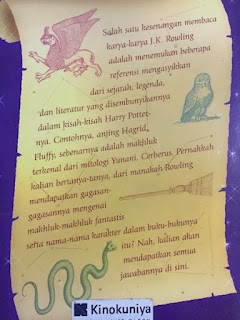 Salah satu kesenangan membaca
karya-karya J.K. Rowling
adalah menemukan beberapa
referensi mengasyikkan
dari sejarah, legenda,
dan literatur yang disembunyikannya
dalam kisah-kisah Harry Potter-
nya. Contohnya, anjing Hagrid,
Fluffy, sebenarnya adalah makhluk
terkenal dari mitologi Yunani, Cerberus. Pernahkah
kalian bertanya-tanya, dari manakah Rowling
mendapatkan gagasan-
gagasannya mengenai
makhluk-makhluk fantastis
serta nama-nama karakter dalam buku-bukunya
itu? Nah, kalian akan
mendapatkan semua
jawabannya di sini.
Kinokuniya